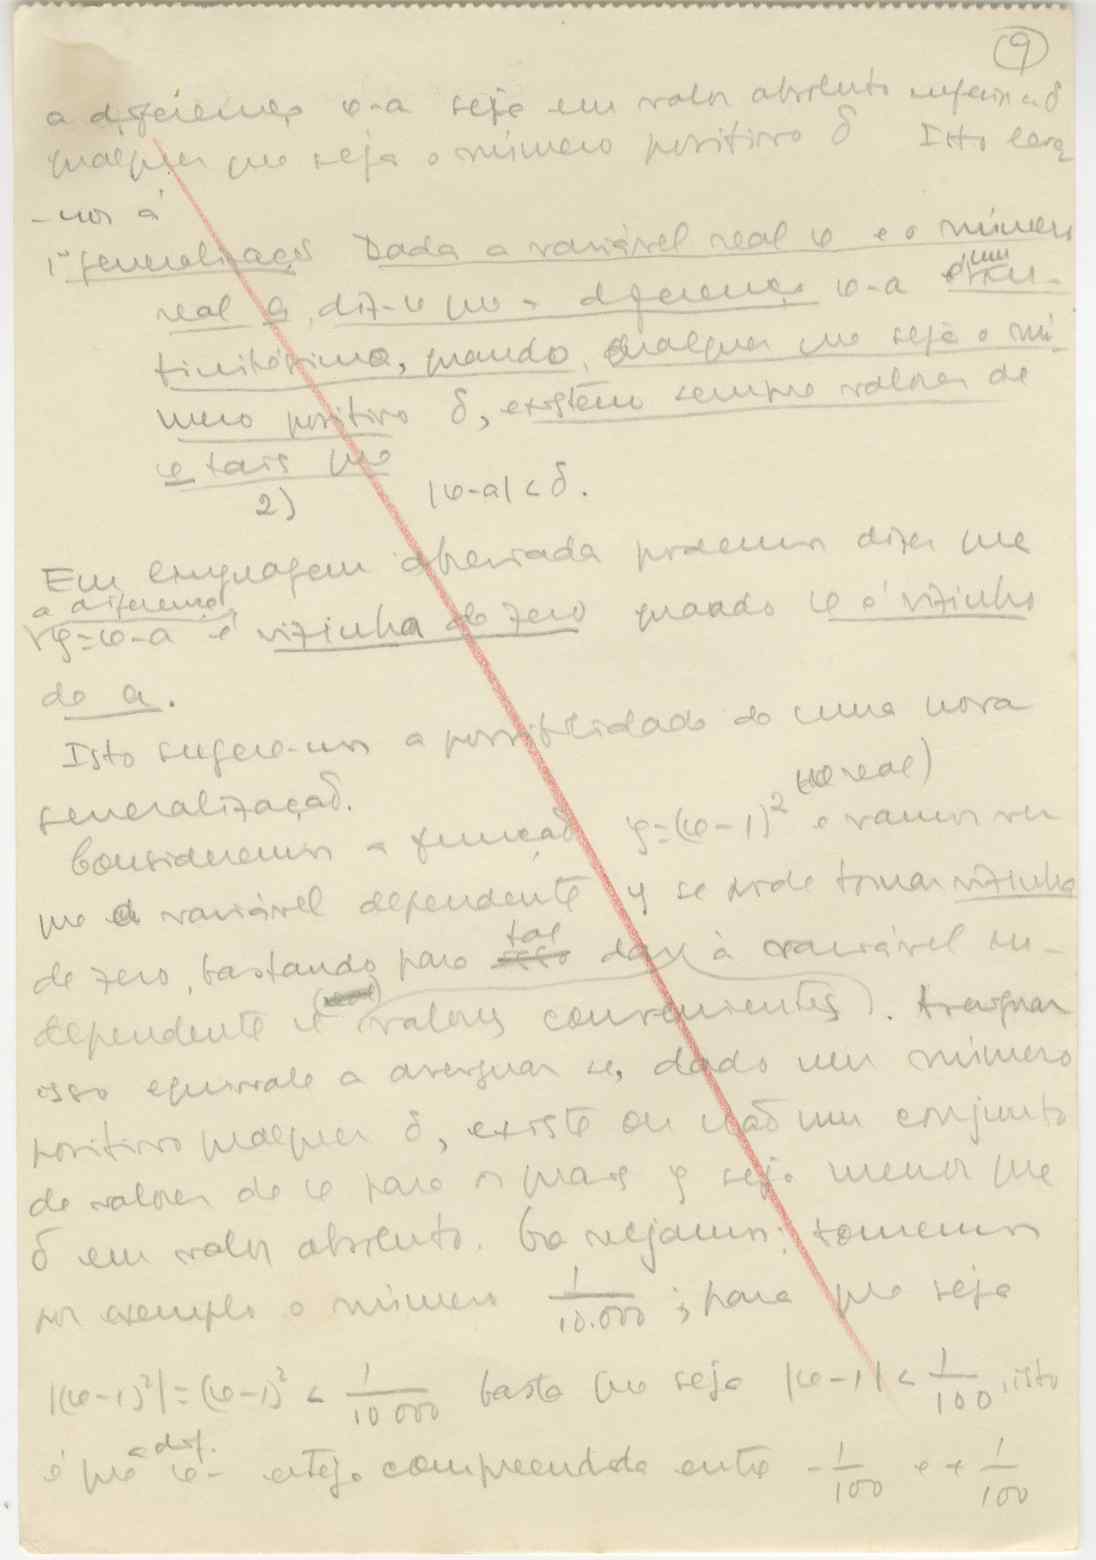 9
a diferença x-a seja em valor absoluto inferior a δ
qualquer que seja o número positivo δ Isto leva
-nos à
1ª generalização Dada a variável real x e o número
real a, diz-se que a diferença x-a é um
infinitésimo, quando, qualquer que seja o nú-
mero positivo δ, existem sempre valores de
x tais que
2) |x-a| < δ.
Em linguagem abreviada podemos dizer que
a diferença
y=x-a é vizinha de zero quando x é vizinho
de a.
Isto sugere-nos a possibilidade de uma nova
generalização.
(x real)
Consideremos a função y=(x-1)² e vamos ver
que a variável dependente y se pode tornar vizinha
de zero, bastando para tal dar à variável in-
dependente x (valores convenientes). Averiguar
isso equivale a averiguar se, dado um número
positivo qualquer δ, existe ou não um conjunto
de valores de x para os quais y seja menor que
δ em valor absoluto. Ora vejamos: tomemos
por exemplo o número 1/10.000; para que seja
|(x-1)²| = (x-1)² < 1/10000 basta que seja |x-1| < 1/100, isto
é que a dif. x- esteja compreendida entre -1/100 e +1/100